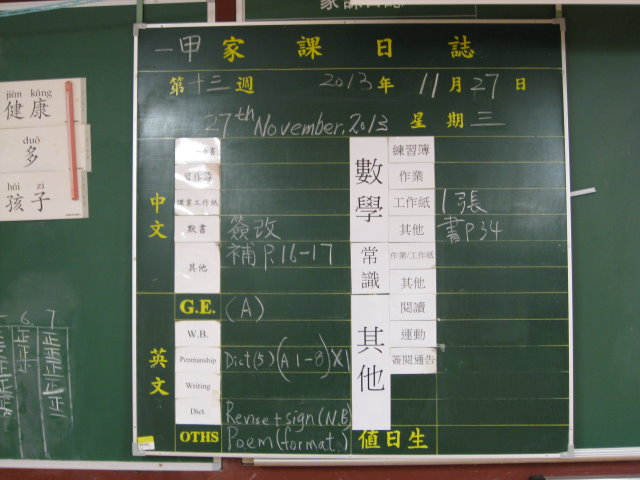 家課日誌
jiàn kāng
健康
duō
多
hái zi
孩子
一甲家課日誌
第十三週 2013年11月27日
27th November, 2013 星期三
中文
習作簿
課業工作紙
默書 簽改
其他 補 P.16-17
英文
G.E. (A)
W.B.
Penmanship Dict(5) (A1-8)X1
Writing
Dict. Revise + sign (N.B)
OTHS Poem (format)
數學
練習簿
作業
工作紙 1張
其他 書P34
常識
作業/工作紙
其他
其他
閱讀
運動
簽閱通告
值日生
6 7
正正
正正
正正
正正